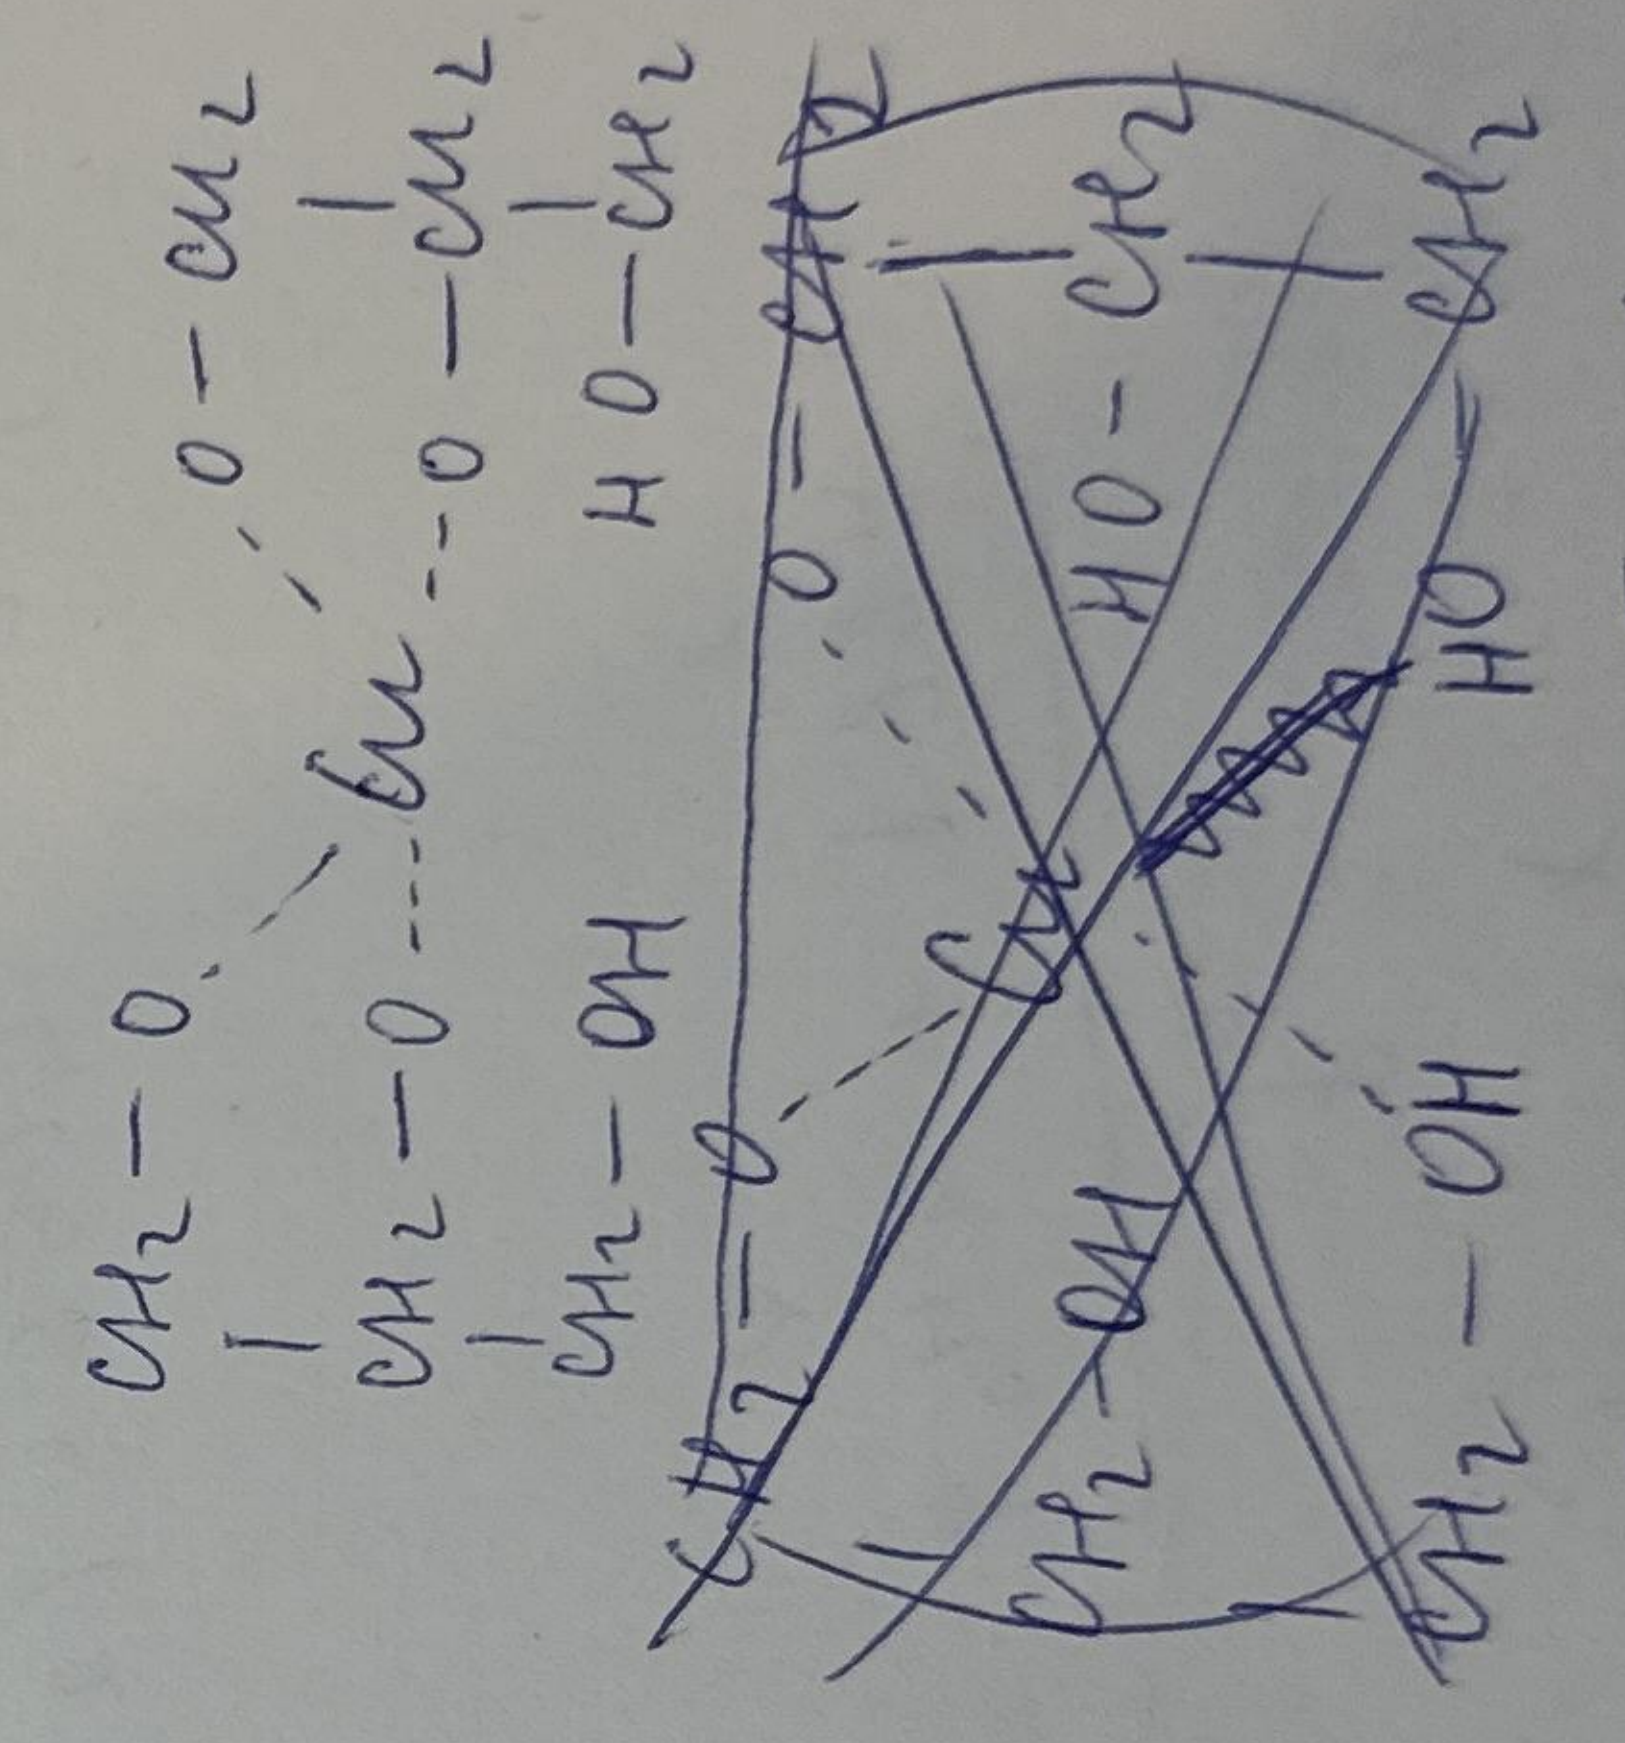 CH2 – O O – CH2
| |
CH2 – O --- Cu --- O – CH2
| |
CH2 – OH HO – CH2
CH2 – O O – CH2
| |
Cu
CH2 – OH HO – CH2
| |
CH2 – OH HO – CH2